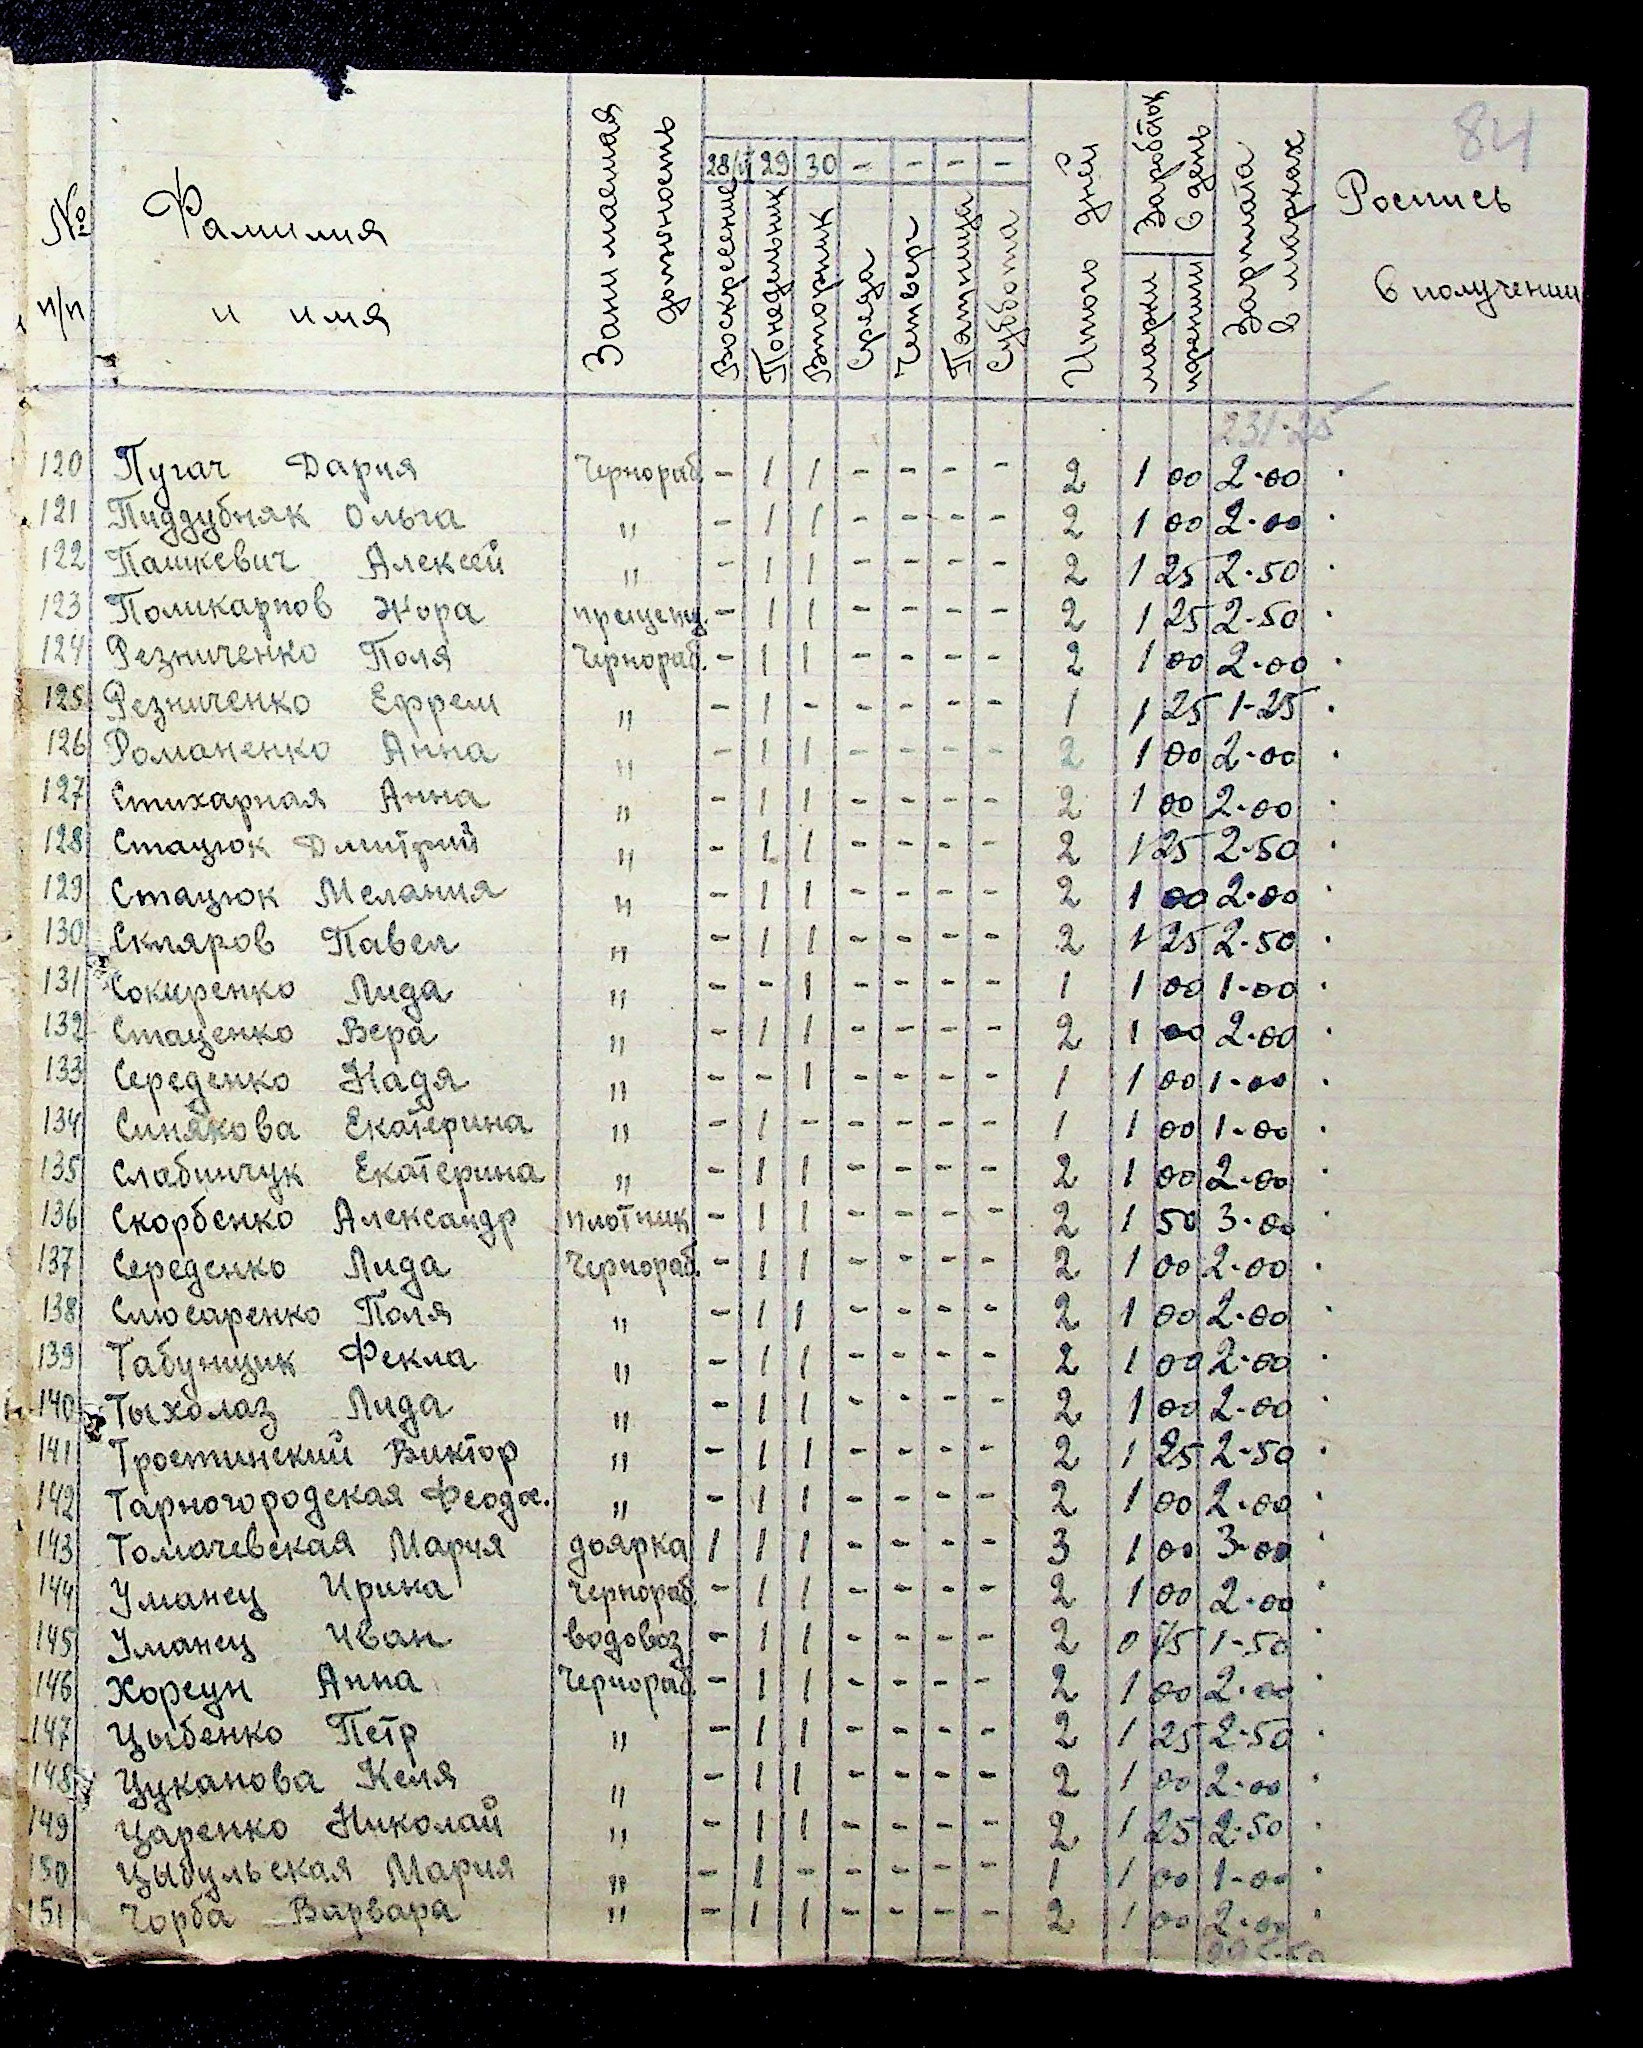 84
№ п/п Фамилия и имя Занимаемая должность 28/ 29 30 - - - - Воскресение Понедельник Вторник Среда Четверг Пятница Суббота Итого дней Заработок в день марки пфенниг Зарплата в марках Роспись в получении
231-25
120 Пугач Дария Чернораб. - 1 1 - - - - 2 1 00 2-00
121 Пиддубняк Ольга " - 1 1 - - - - 2 1 00 2-00
122 Пашкевич Алексей " - 1 1 - - - - 2 1 25 2-50
123 Поликарпов Жора - 1 1 - - - - 2 1 25 2-50
124 Резниченко Поля Чернораб. - 1 1 - - - - 2 1 00 2-00
125 Резниченко Ефрем " - 1 - - - - - 1 1 25 1-25
126 Романенко Анна " - 1 1 - - - - 2 1 00 2-00
127 Стихарная Анна " - 1 1 - - - - 2 1 00 2-00
128 Стацюк Дмитрий " - 1 1 - - - - 2 1 25 2-50
129 Стацюк Мелания " - 1 1 - - - - 2 1 00 2-00
130 Скляров Павел " - 1 1 - - - - 2 1 25 2-50
131 Сокиренко Лида " - - 1 - - - - 1 1 00 1-00
132 Стаценко Вера " - 1 1 - - - - 2 1 00 2-00
133 Середенко Надя " - - 1 - - - - 1 1 00 1-00
134 Синякова Екатерина " - 1 - - - - - 1 1 00 1-00
135 Слабинчук Екатерина " - 1 1 - - - - 2 1 00 2-00
136 Скорбенко Александр плотник - 1 1 - - - - 2 1 50 3-00
137 Середенко Лида Чернораб. - 1 1 - - - - 2 1 00 2-00
138 Слюсаренко Поля " - 1 1 - - - - 2 1 00 2-00
139 Табунщик Фекла " - 1 1 - - - - 2 1 00 2-00
140 Тыхолаз Лида " - 1 1 - - - - 2 1 00 2-00
141 Тростинский Виктор " - 1 1 - - - - 2 1 25 2-50
142 Тарногородская Феодос. " - 1 1 - - - - 2 1 00 2-00
143 Томачевская Мария доярка 1 1 1 - - - - 3 1 00 3-00
144 Уманец Ирина Чернораб. - 1 1 - - - - 2 1 00 2-00
145 Уманец Иван водовоз - 1 1 - - - - 2 0 75 1-50
146 Хорсун Анна Чернораб. - 1 1 - - - - 2 1 00 2-00
147 Цыбенко Петр " - 1 1 - - - - 2 1 25 2-50
148 Цуканова Келя " - 1 1 - - - - 2 1 00 2-00
149 Царенко Николай " - 1 1 - - - - 2 1 25 2-50
150 Цыбульская Мария " - 1 - - - - - 1 1 00 1-00
151 Чорба Варвара " - 1 1 - - - - 2 1 00 2-00